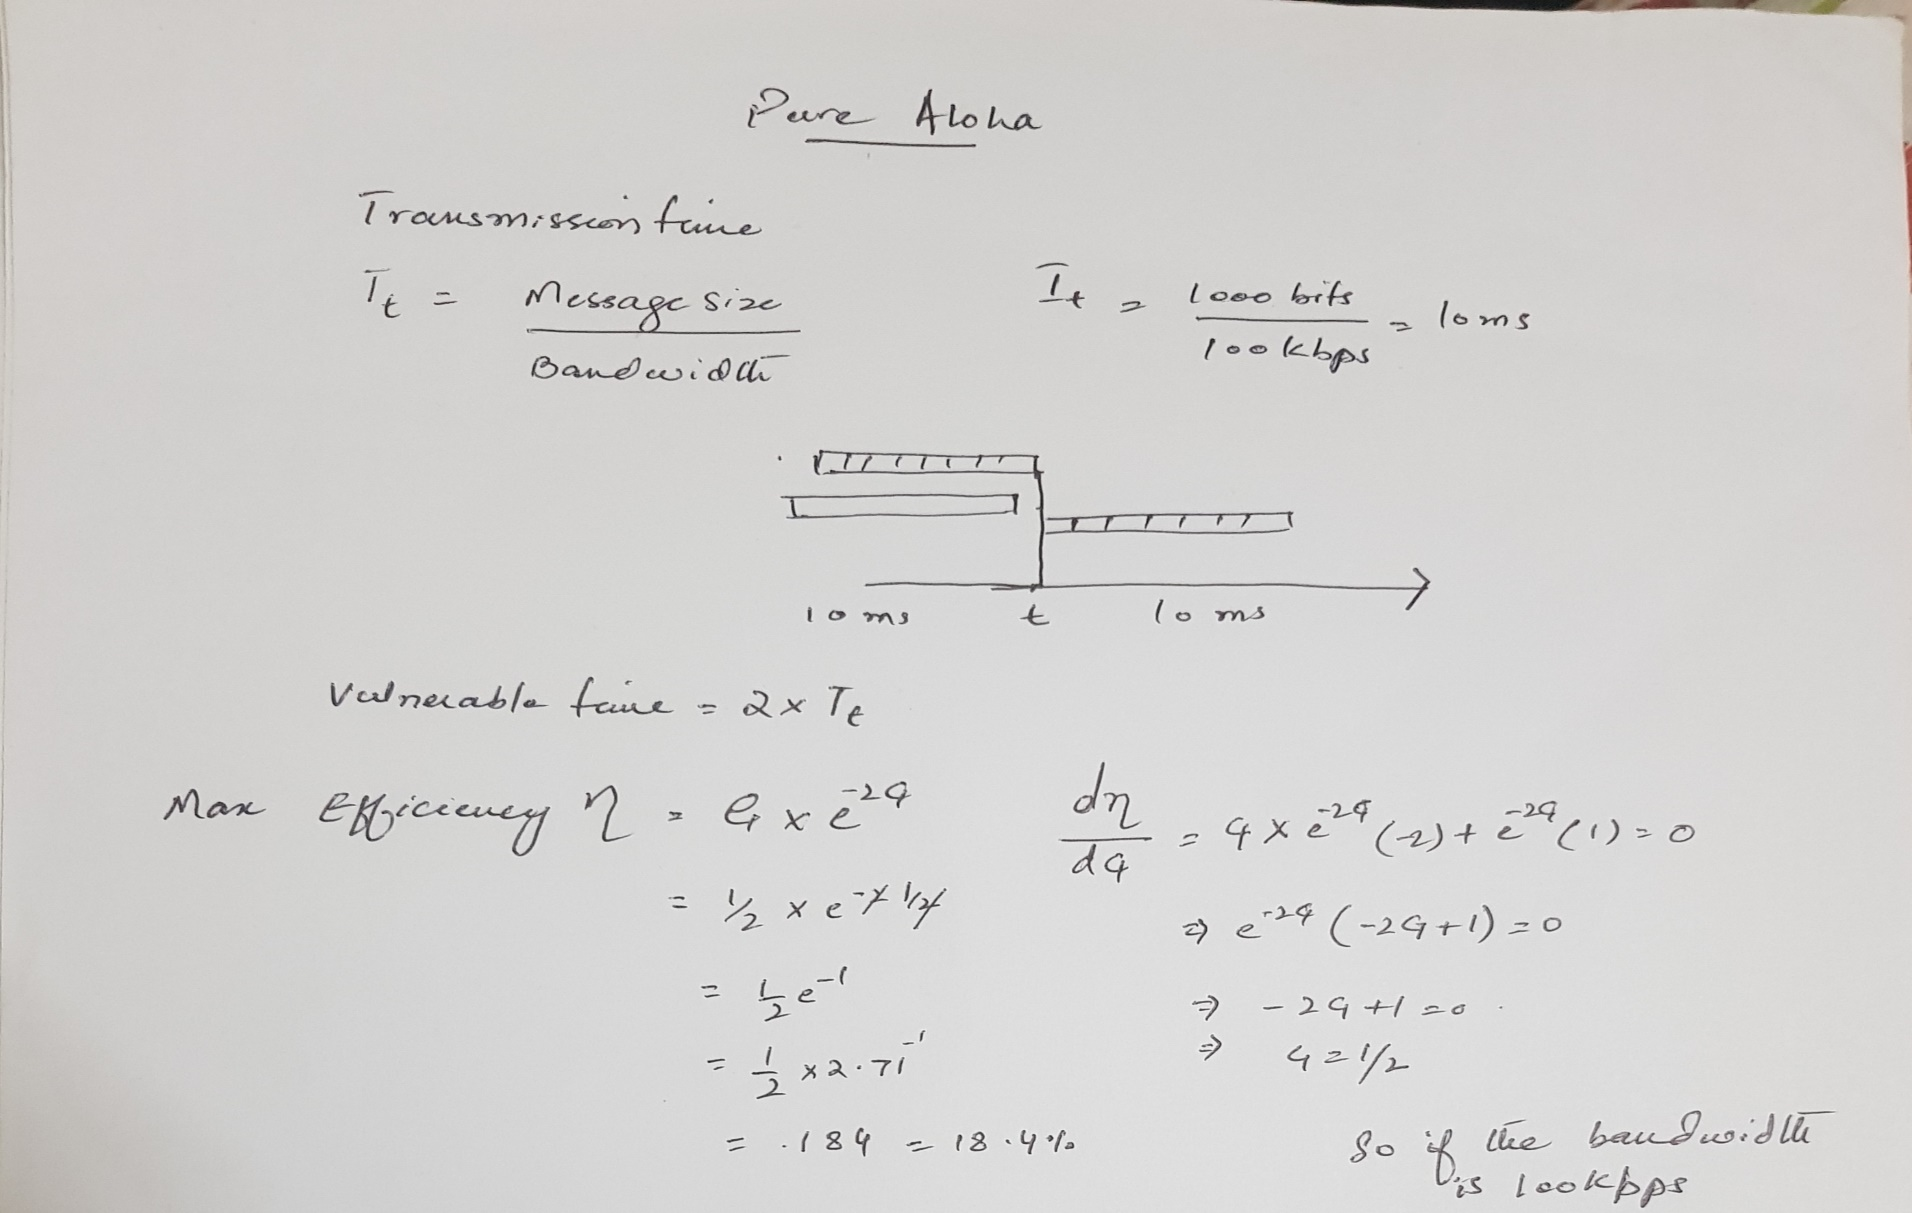 Pure Aloha
Transmission time
Tt = Message size / Bandwidth
Tt = 1000 bits / 100 kbps = 10 ms
10 ms t 10 ms
Vulnerable time = 2 x Tt
Max Efficiency η = G x e^-2G
= 1/2 x e^-2 x 1/2
= 1/2 e^-1
= 1/2 x 2.71^-1
= .184 = 18.4%
dη/dG = G x e^-2G (-2) + e^-2G (1) = 0
⇒ e^-2G (-2G+1) = 0
⇒ -2G+1=0
⇒ G=1/2
So if the bandwidth
is 100kbps